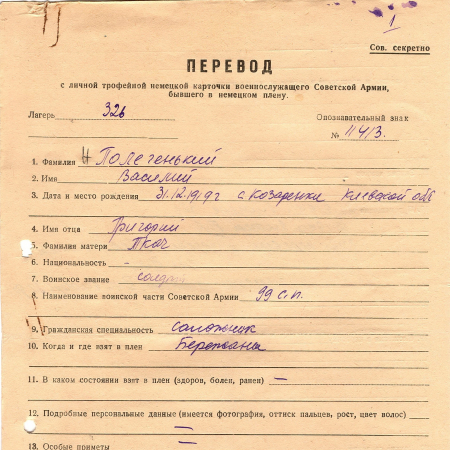 1
Сов. секретно
ПЕРЕВОД
с личной трофейной немецкой карточки военнослужащего Советской Армии,
бывшего в немецком плену.
Лагерь 326
Опознавательный знак
№ 11413.
1. Фамилия Полегенький
2. Имя Василий
3. Дата и место рождения 31.12.1919г с. Козаренки Киевской обл
4. Имя отца Григорий
5. Фамилия матери Ткач
6. Национальность -
7. Воинское звание солдат
8. Наименование воинской части Советской Армии 99 с.п.
9. Гражданская специальность сапожник
10. Когда и где взят в плен Бережаны
11. В каком состоянии взят в плен (здоров, болен, ранен) —
12. Подробные персональные данные (имеется фотография, оттиск пальцев, рост, цвет волос)
—
13. Особые приметы —